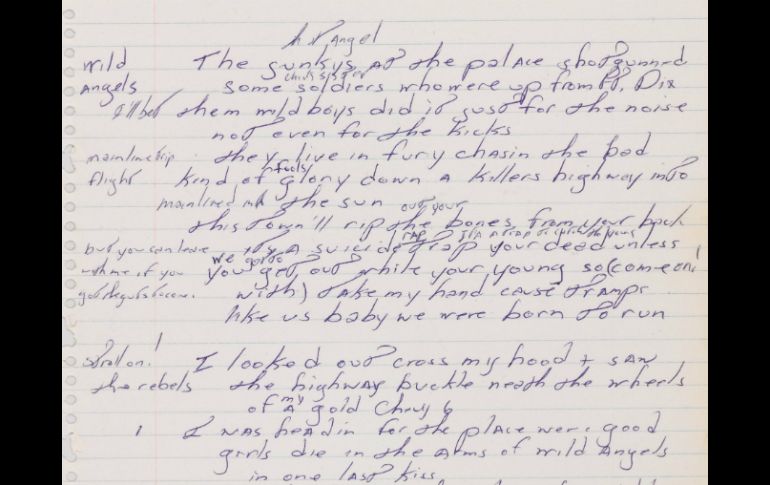 Angel
Wild The gunkys at the palace shotgunned
Angels some soldiers who were up from Ft. Dix
I'll bet them wild boys did it just for the noise
not even for the kicks
they live in fury chasin the bad
flight kind of glory down a killers highway into
fools
mainlined the sun out your
this town'll rip the bones from your back
but you can leave its a suicide trap your dead unless
rap its a trap
we gotta
with me if you you get out while your young so (come on!
with) take my hand cause tramps
like us baby we were born to run
Stroll on! I looked out cross my hood + saw
the rebels the highway buckle neath the wheels
of a gold Chevy 6
my
I was headin for the place were good
girls die in the arms of wild Angels
in one last kiss